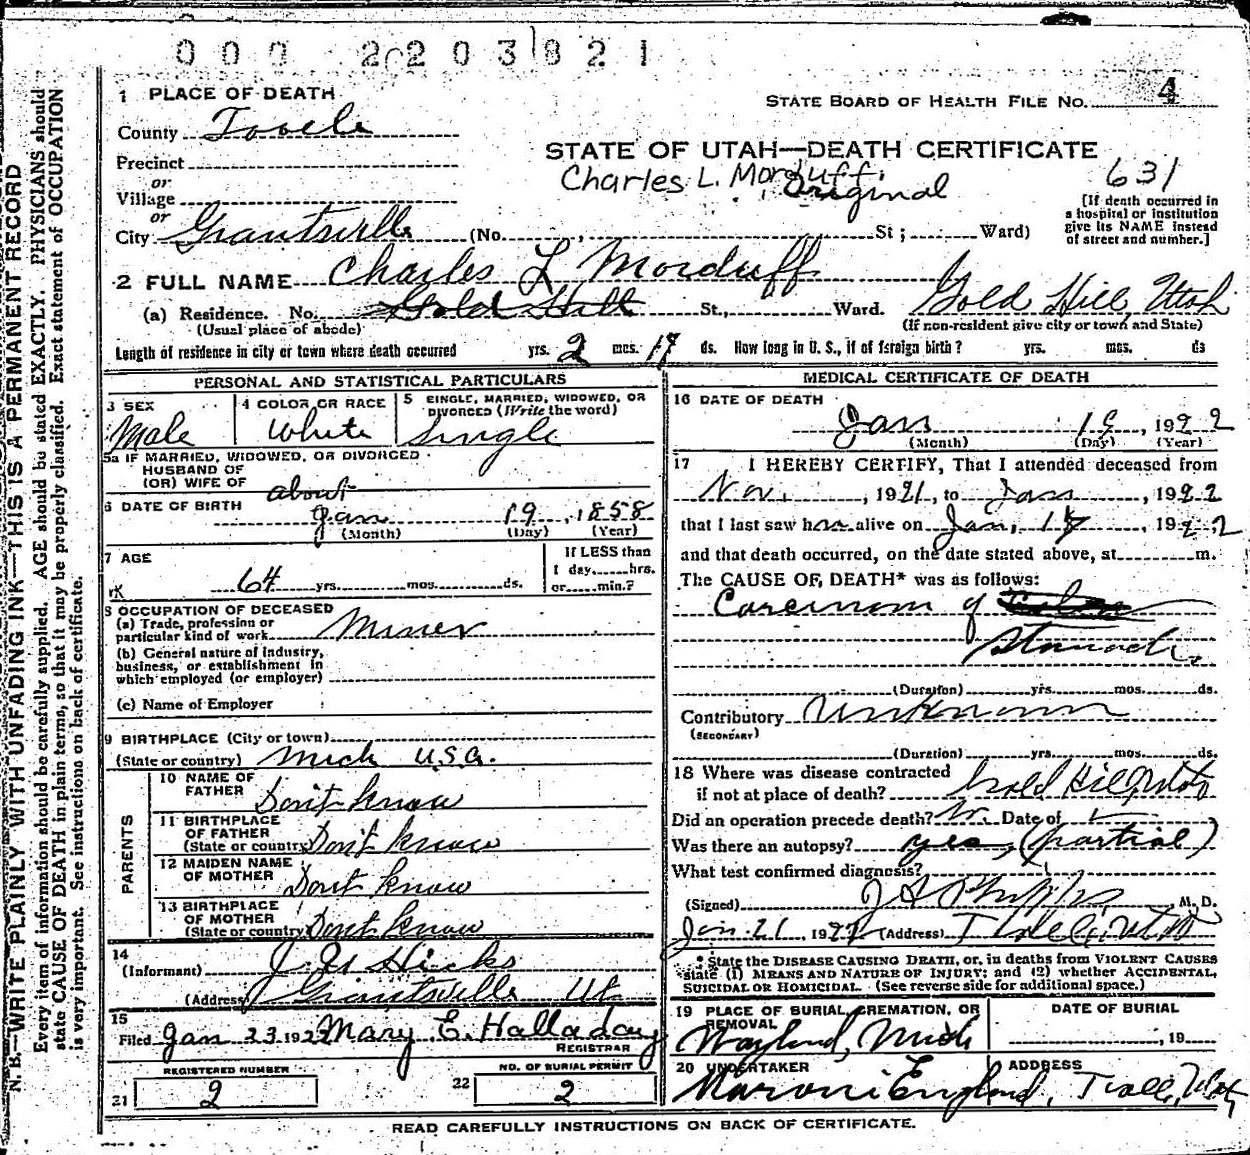 000 2203821
1 PLACE OF DEATH
STATE BOARD OF HEALTH FILE NO. 4
County Tooele
Precinct
STATE OF UTAH—DEATH CERTIFICATE
or
Village
Charles L. Morduff.
Original
631
or
City Grantsville (No. , St; Ward)
[If death occurred in a hospital or institution give its NAME instead of street and number.]
2 FULL NAME Charles L Morduff
(a) Residence. No. Gold Hill St., Ward. Gold Hill, Utah
(Usual place of abode)
(If non-resident give city or town and State)
Length of residence in city or town where death occurred yrs. 2 mos. 17 ds. How long in U. S., if of foreign birth? yrs. mos. ds
PERSONAL AND STATISTICAL PARTICULARS
3 SEX
Male
4 COLOR OR RACE
White
5 SINGLE, MARRIED, WIDOWED, OR DIVORCED (Write the word)
Single
5a IF MARRIED, WIDOWED, OR DIVORCED
HUSBAND OF
(OR) WIFE OF
about
6 DATE OF BIRTH
Jan 19, 1858
(Month) (Day) (Year)
7 AGE
64 yrs. mos. ds.
If LESS than
1 day, hrs.
or min.?
8 OCCUPATION OF DECEASED
(a) Trade, profession or
particular kind of work Miner
(b) General nature of industry,
business, or establishment in
which employed (or employer)
(c) Name of Employer
9 BIRTHPLACE (City or town)
(State or country) Mich U.S.A.
PARENTS
10 NAME OF
FATHER Don't know
11 BIRTHPLACE
OF FATHER
(State or country) Don't know
12 MAIDEN NAME
OF MOTHER Don't know
13 BIRTHPLACE
OF MOTHER
(State or country) Don't know
14
(Informant) Hicks
(Address Grantsville Ut.
15
Filed Jan 23 1922 Mary E. Halladay
REGISTRAR
REGISTERED NUMBER
21 2
NO. OF BURIAL PERMIT
22 2
MEDICAL CERTIFICATE OF DEATH
16 DATE OF DEATH
Jan 19, 1922
(Month) (Day) (Year)
17 I HEREBY CERTIFY, That I attended deceased from
Nov. , 1921, to Jan , 1922
that I last saw him alive on Jan, 18 , 1922
and that death occurred, on the date stated above, at m.
The CAUSE OF DEATH* was as follows:
Carcinom of
Stomach.
(Duration) yrs. mos. ds.
Contributory Unknown
(SECONDARY)
(Duration) yrs. mos. ds.
18 Where was disease contracted
if not at place of death? Gold Hill, Utah
Did an operation precede death? No. Date of
Was there an autopsy? yes, (partial)
What test confirmed diagnosis?
(Signed) J A Phipps, M. D.
Jan. 21, 1922 (Address) Tooele, Utah
* State the DISEASE CAUSING DEATH, or, in deaths from VIOLENT CAUSES
state (1) MEANS AND NATURE OF INJURY; and (2) whether ACCIDENTAL,
SUICIDAL OR HOMICIDAL. (See reverse side for additional space.)
19 PLACE OF BURIAL, CREMATION, OR
REMOVAL
Wayland, Mich
DATE OF BURIAL
, 19
20 UNDERTAKER
Maroni England,
ADDRESS
Tooele, Utah
READ CAREFULLY INSTRUCTIONS ON BACK OF CERTIFICATE.
N. B.—WRITE PLAINLY WITH UNFADING INK—THIS IS A PERMANENT RECORD
Every item of information should be carefully supplied. AGE should be stated EXACTLY. PHYSICIANS should
state CAUSE OF DEATH in plain terms, so that it may be properly classified. Exact statement of OCCUPATION
is very important. See instructions on back of certificate.